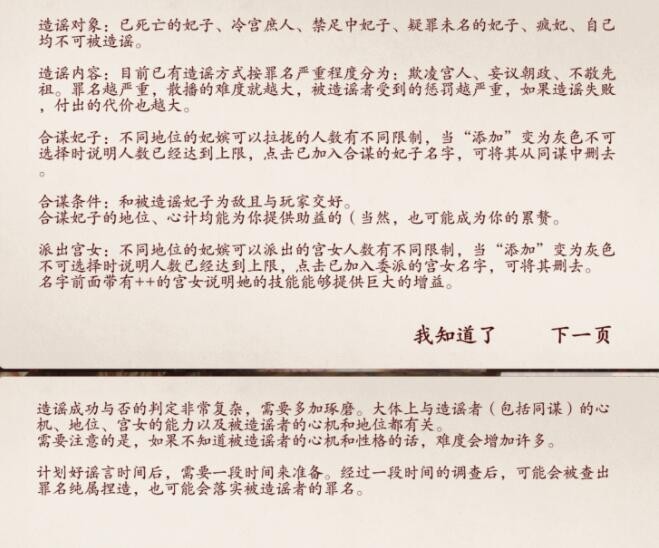 造谣对象：已死亡的妃子、冷宫庶人、禁足中妃子、疑罪未名的妃子、疯妃、自己
均不可被造谣。
造谣内容：目前已有造谣方式按罪名严重程度分为：欺凌宫人、妄议朝政、不敬先
祖。罪名越严重，散播的难度就越大，被造谣者受到的惩罚越严重，如果造谣失败
，付出的代价也越大。
合谋妃子：不同地位的妃嫔可以拉拢的人数有不同限制，当“添加”变为灰色不可
选择时说明人数已经达到上限，点击已加入合谋的妃子名字，可将其从同谋中删去
。
合谋条件：和被造谣妃子为敌且与玩家交好。
合谋妃子的地位、心计均能为你提供助益的（当然，也可能成为你的累赘。
派出宫女：不同地位的妃嫔可以派出的宫女人数有不同限制，当“添加”变为灰色
不可选择时说明人数已经达到上限，点击已加入委派的宫女名字，可将其删去。
名字前面带有++的宫女说明她的技能能够提供巨大的增益。
我知道了 下一页
造谣成功与否的判定非常复杂，需要多加琢磨。大体上与造谣者（包括同谋）的心
机、地位、宫女的能力以及被造谣者的心机和地位都有关。
需要注意的是，如果不知道被造谣者的心机和性格的话，难度会增加许多。
计划好谣言时间后，需要一段时间来准备。经过一段时间的调查后，可能会被查出
罪名纯属捏造，也可能会落实被造谣者的罪名。